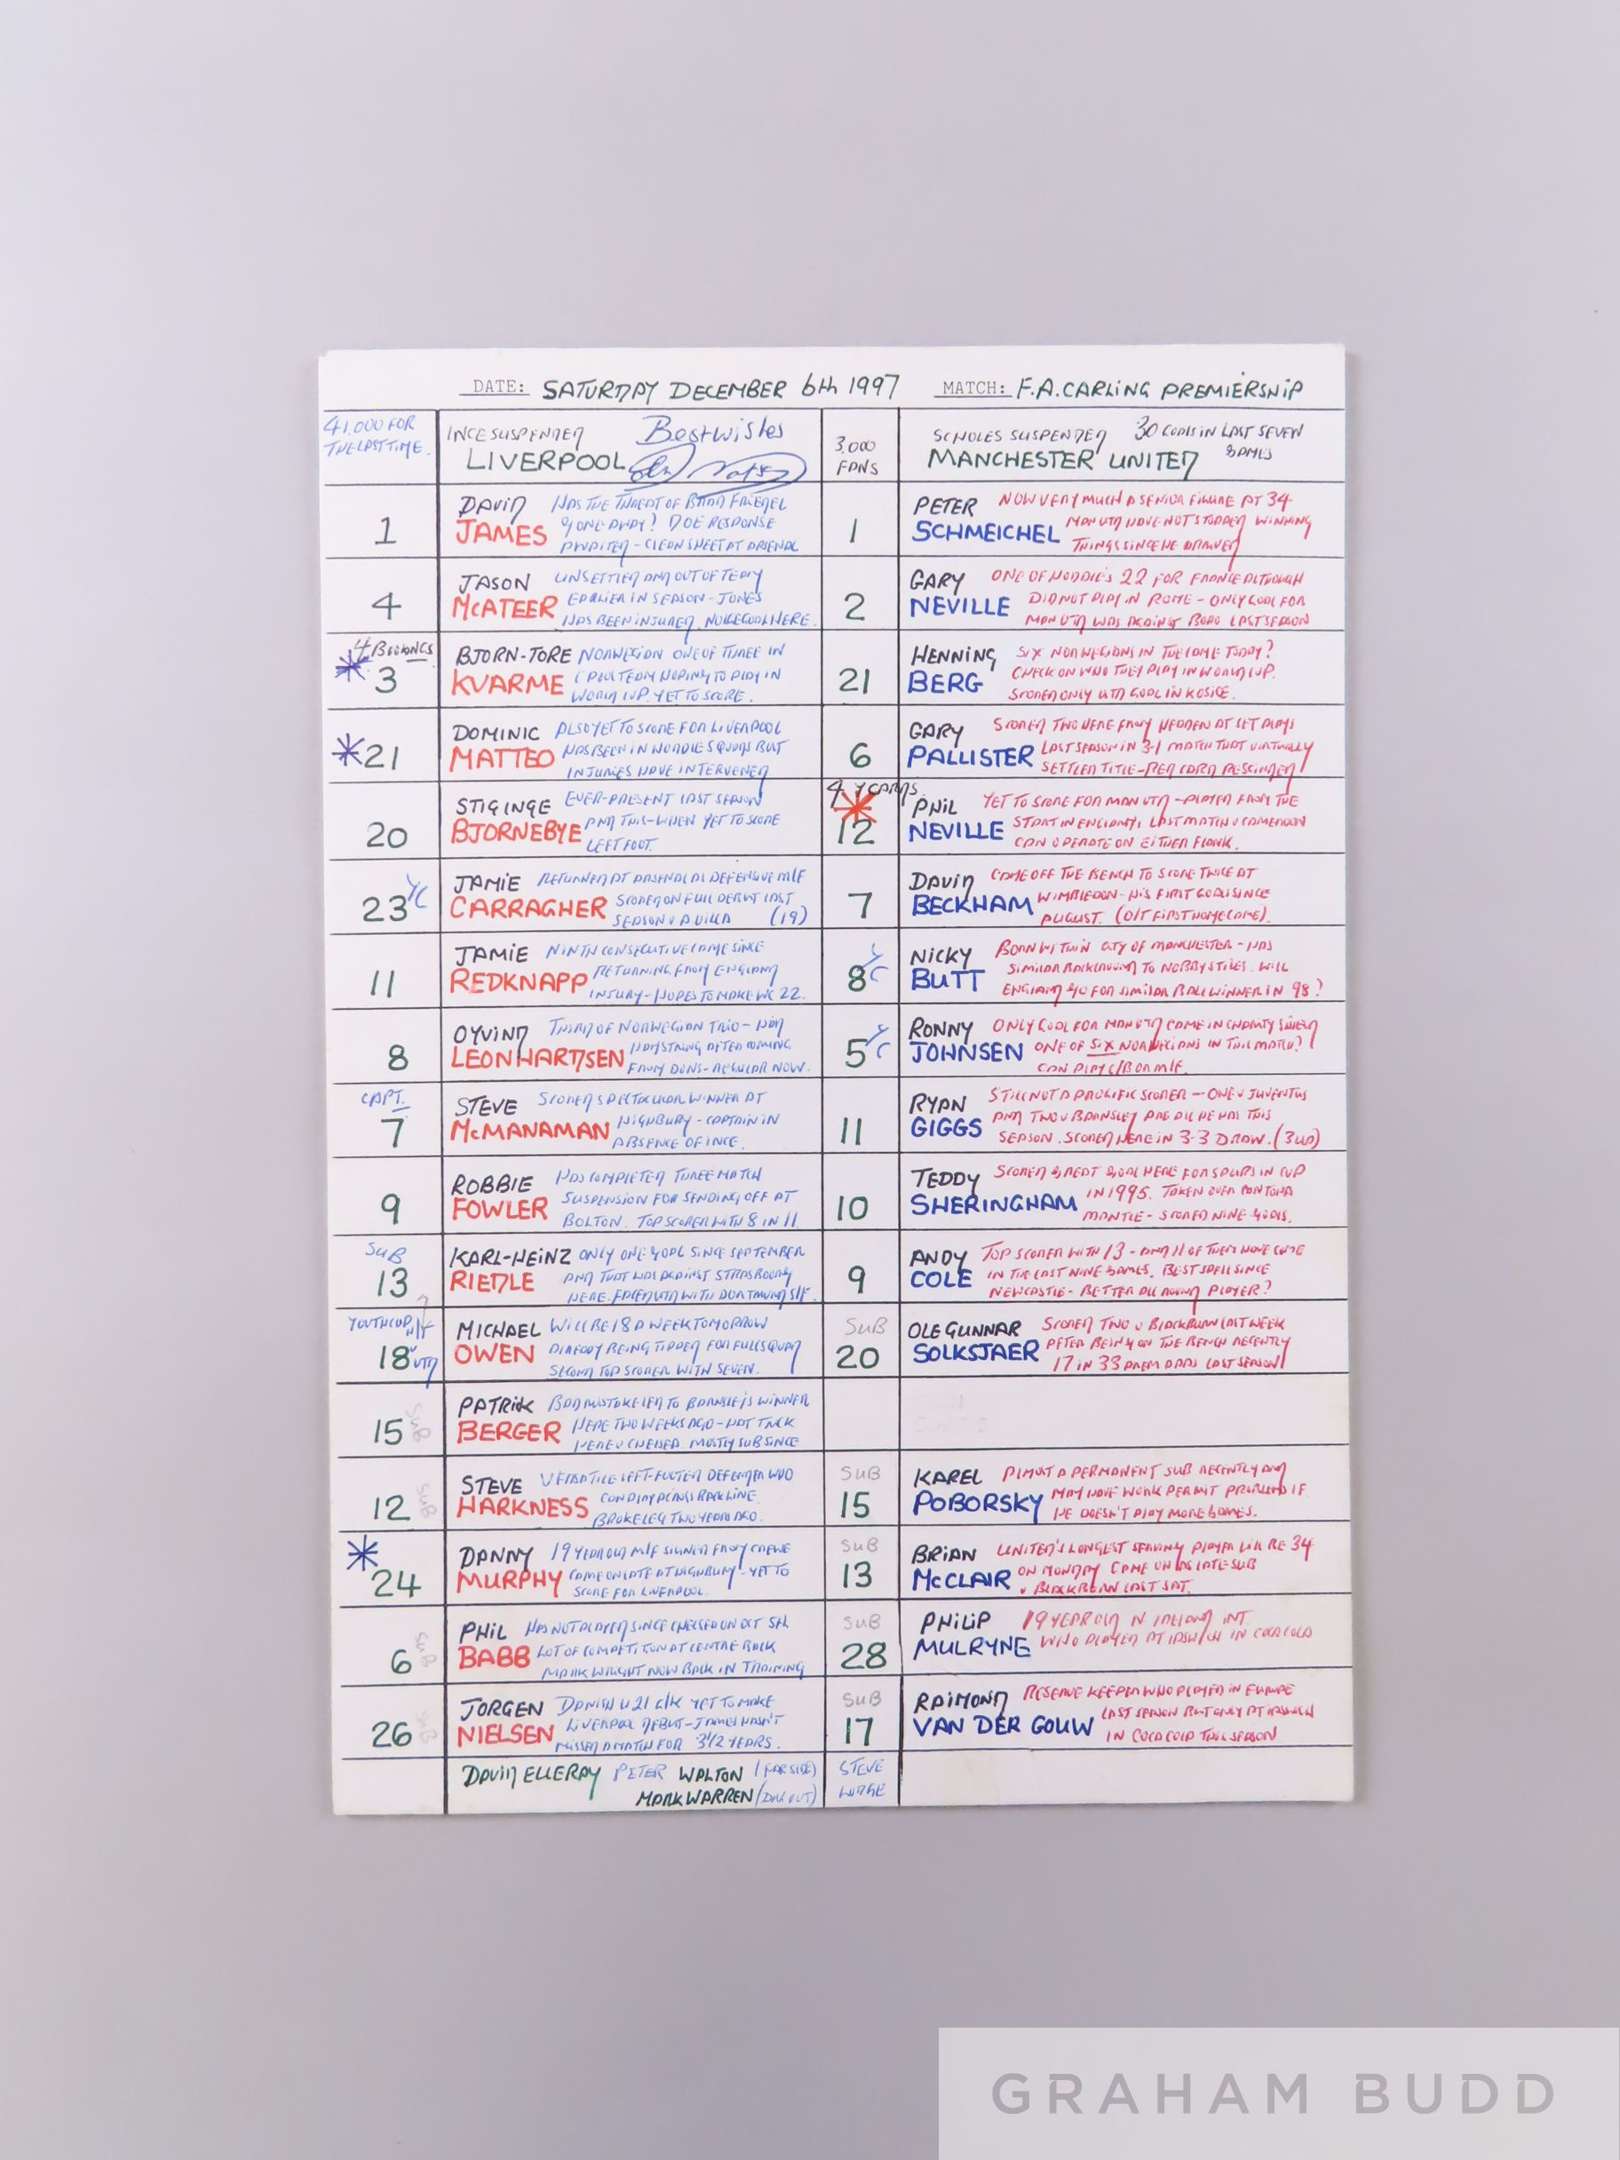 DATE: SATURDAY DECEMBER 6th 1997 MATCH: F.A. CARLING PREMIERSHIP
41,000 FOR
THE LAST TIME.
INCE SUSPENDED Best wishes
LIVERPOOL
3,000
FANS
SCHOLES SUSPENDED 30 GOALS IN LAST SEVEN
MANCHESTER UNITED GAMES
1
DAVID HAS THE THREAT OF BRAD FRIEDEL
JAMES GONE AWAY? DOE RESPONSE
AWAITED - CLEAN SHEET AT ARSENAL
1
PETER NOW VERY MUCH A SENIOR FIGURE AT 34
SCHMEICHEL MAN UTD HAVE NOT STOPPED WINNING
THINGS SINCE HE ARRIVED
4
JASON UNSETTLED AND OUT OF TEAM
McATEER EARLIER IN SEASON - JONES
HAS BEEN INJURED. NO LGE GOAL HERE.
2
GARY ONE OF HODDLE'S 22 FOR FRANCE ALTHOUGH
NEVILLE DID NOT PLAY IN ROME - ONLY GOAL FOR
MAN UTD WAS AGAINST BORO LAST SEASON
4 BOOKINGS
* 3
BJORN-TORE NORWEGIAN ONE OF THREE IN
KVARME L'POOL TEAM HOPING TO PLAY IN
WORLD CUP. YET TO SCORE.
21
HENNING SIX NORWEGIANS IN THE GAME TODAY?
BERG CHECK ON WHO THEY PLAY IN WORLD CUP.
SCORED ONLY UTD GOAL IN KOSICE.
* 21
DOMINIC ALSO YET TO SCORE FOR LIVERPOOL
MATTEO HAS BEEN IN HODDLE SQUADS BUT
INJURIES HAVE INTERVENED
6
GARY SCORED TWO HERE FROM HEADERS AT SET PLAYS
PALLISTER LAST SEASON IN 3-1 MATCH THAT VIRTUALLY
SETTLED TITLE - RED CARD RESCINDED
20
STIG INGE EVER-PRESENT LAST SEASON
BJORNEBYE AND THIS - WHEN YET TO SCORE
LEFT FOOT.
4 Y CARDS
* 12
PHIL YET TO SCORE FOR MAN UTD - PLAYED FROM THE
NEVILLE START IN ENGLAND'S LAST MATCH V CAMEROON
CAN OPERATE ON EITHER FLANK.
23 YC
JAMIE RETURNED AT ARSENAL AS DEFENSIVE M/F
CARRAGHER SCORED ON FULL DEBUT LAST
SEASON V A VILLA (19)
7
DAVID CAME OFF THE BENCH TO SCORE TWICE AT
BECKHAM WIMBLEDON - HIS FIRST GOALS SINCE
AUGUST. (O/T FIRST HOME GAME).
11
JAMIE NINTH CONSECUTIVE GAME SINCE
REDKNAPP RETURNING FROM ENGLAND
INJURY - HOPES TO MAKE WC 22.
8 YC
NICKY BORN WITHIN CITY OF MANCHESTER - HAS
BUTT SIMILAR BACKGROUND TO NOBBY STILES. WILL
ENGLAND GO FOR SIMILAR BALL WINNER IN 98?
8
OYVIND THIRD OF NORWEGIAN TRIO - HAD
LEONHARDSEN HAMSTRING AFTER COMING
FROM DONS - REGULAR NOW.
5 YC
RONNY ONLY GOAL FOR MAN UTD CAME IN CHARITY SHIELD
JOHNSEN ONE OF SIX NORWEGIANS IN THIS MATCH?
CAN PLAY C/B OR M/F.
CAPT.
7
STEVE SCORED SPECTACULAR WINNER AT
McMANAMAN HIGHBURY - CAPTAIN IN
ABSENCE OF INCE.
11
RYAN STILL NOT A PROLIFIC SCORER - ONE V JUVENTUS
GIGGS AND TWO V BARNSLEY ARE ALL HE HAS THIS
SEASON. SCORED HERE IN 3-3 DRAW. (3 UP)
9
ROBBIE HAS COMPLETED THREE MATCH
FOWLER SUSPENSION FOR SENDING OFF AT
BOLTON. TOP SCORER WITH 8 IN 11
10
TEDDY SCORED GREAT GOAL HERE FOR SPURS IN CUP
SHERINGHAM IN 1995. TAKEN OVER CANTONA
MANTLE - SCORED NINE GOALS.
SUB
13
KARL-HEINZ ONLY ONE GOAL SINCE SEPTEMBER
RIEDLE AND THAT WAS AGAINST STRASBOURG
HERE. FACED UTD WITH DORTMUND S/F.
9
ANDY TOP SCORER WITH 13 - AND 11 OF THEM HAVE COME
COLE IN THE LAST NINE GAMES. BEST SPELL SINCE
NEWCASTLE - BETTER ALL ROUND PLAYER?
YOUTH CUP
18 V UTD
MICHAEL WILL BE 18 A WEEK TOMORROW
OWEN ALREADY BEING TIPPED FOR FULL SQUAD
SECOND TOP SCORER WITH SEVEN.
SUB
20
OLE GUNNAR SCORED TWO V BLACKBURN LAST WEEK
SOLKSJAER AFTER BEING ON THE BENCH RECENTLY
17 IN 33 PREM APPS LAST SEASON
15 SUB
PATRIK BAD MISTAKE LED TO BARNSLEY'S WINNER
BERGER HERE TWO WEEKS AGO - HAT TRICK
HERE V CHELSEA. MOSTLY SUB SINCE
12 SUB
STEVE VERSATILE LEFT-FOOTED DEFENDER WHO
HARKNESS CAN PLAY ACROSS BACK LINE.
BROKE LEG TWO YEARS AGO.
SUB
15
KAREL ALMOST A PERMANENT SUB RECENTLY AND
POBORSKY MAY HAVE WORK PERMIT PROBLEMS IF
HE DOESN'T PLAY MORE GAMES.
* 24
DANNY 19 YEAR OLD M/F SIGNED FROM CREWE
MURPHY CAME ON LATE AT HIGHBURY - YET TO
SCORE FOR LIVERPOOL.
SUB
13
BRIAN UNITED'S LONGEST SERVING PLAYER WILL BE 34
McCLAIR ON MONDAY CAME ON AS LATE SUB
V BLACKBURN LAST SAT.
6 SUB
PHIL HAS NOT PLAYED SINCE CHELSEA ON OCT 5th
BABB LOT OF COMPETITION AT CENTRE BACK
MARK WRIGHT NOW BACK IN TRAINING
SUB
28
PHILIP 19 YEAR OLD N IRELAND INT.
MULRYNE WHO PLAYED AT IPSWICH IN COCA COLA
26 SUB
JORGEN DANISH U21 G/K YET TO MAKE
NIELSEN LIVERPOOL DEBUT - JAMES HASN'T
MISSED A MATCH FOR 3 1/2 YEARS.
SUB
17
RAIMOND RESERVE KEEPER WHO PLAYED IN EUROPE
VAN DER GOUW LAST SEASON BUT ONLY AT IPSWICH
IN COCA COLA THIS SEASON
DAVID ELLERAY PETER WALTON (FAR SIDE)
MARK WARREN (DUG OUT)
STEVE
LODGE
GRAHAM BUDD